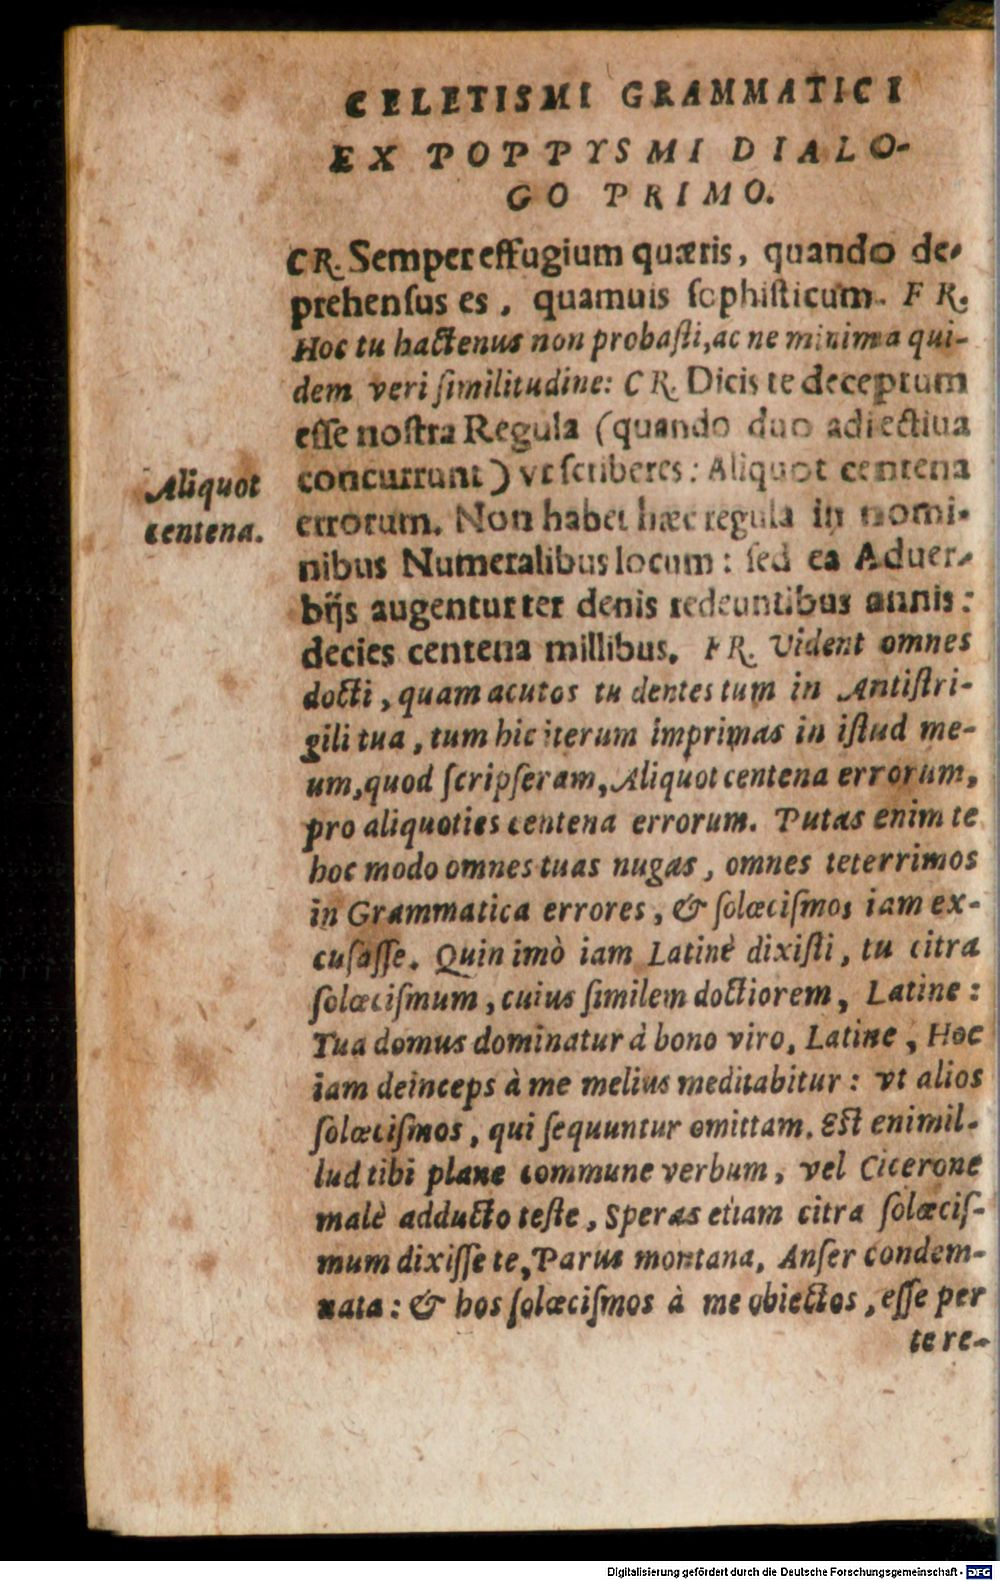 CELETISMI GRAMMATICI
EX POPPYSMI DIALO-
GO PRIMO.
CR. Semper effugium quæris, quando de-
prehenſus es, quamuis ſophiſticum. FR.
Hoc tu hactenus non probaſti, ac ne minima qui-
dem veri ſimilitudine: CR. Dicis te deceptum
eſſe noſtra Regula (quando duo adiectiua
concurrunt) vt ſcriberes: Aliquot centena
errorum. Non habet hæc regula in nomi-
nibus Numeralibus locum: ſed ea Aduer-
bijs augentur ter denis redeuntibus annis:
decies centena millibus. FR. Vident omnes
docti, quam acutos tu dentes tum in Antiſtri-
gili tua, tum hic iterum imprimas in iſtud me-
um, quod ſcripſeram, Aliquot centena errorum,
pro aliquoties centena errorum. Putas enim te
hoc modo omnes tuas nugas, omnes teterrimos
in Grammatica errores, & ſolœciſmos iam ex-
cuſaſſe. Quin imò iam Latinè dixiſti, tu citra
ſolœciſmum, cuius ſimilem doctiorem, Latine:
Tua domus dominatur à bono viro, Latine, Hoc
iam deinceps à me melius meditabitur: vt alios
ſolœciſmos, qui ſequuntur omittam. Eſt enim il-
lud tibi plane commune verbum, vel Cicerone
malè adducto teſte, Speras etiam citra ſolœciſ-
mum dixiſſe te, Parus montana, Anſer condem-
nata: & hos ſolœciſmos à me obiectos, eſſe per
te re-
Aliquot
centena.
Digitalisierung gefördert durch die Deutsche Forschungsgemeinschaft - DFG